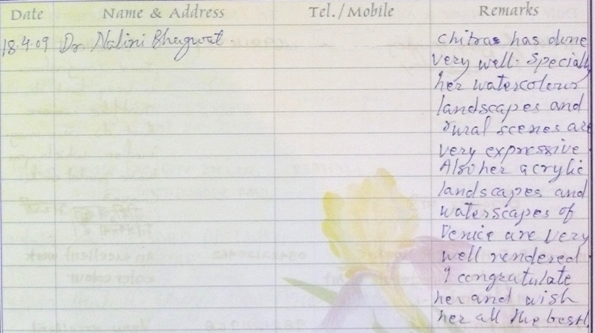 Date Name & Address Tel./Mobile Remarks
18.4.09 Dr. Nalini Bhagwat chitras has done
very well. Specially
her watercolour
landscapes and
rural scenes are
very expressive.
Also her acrylic
landscapes and
waterscapes of
Venice are very
well rendered.
I congratulate
her and wish
her all the best!